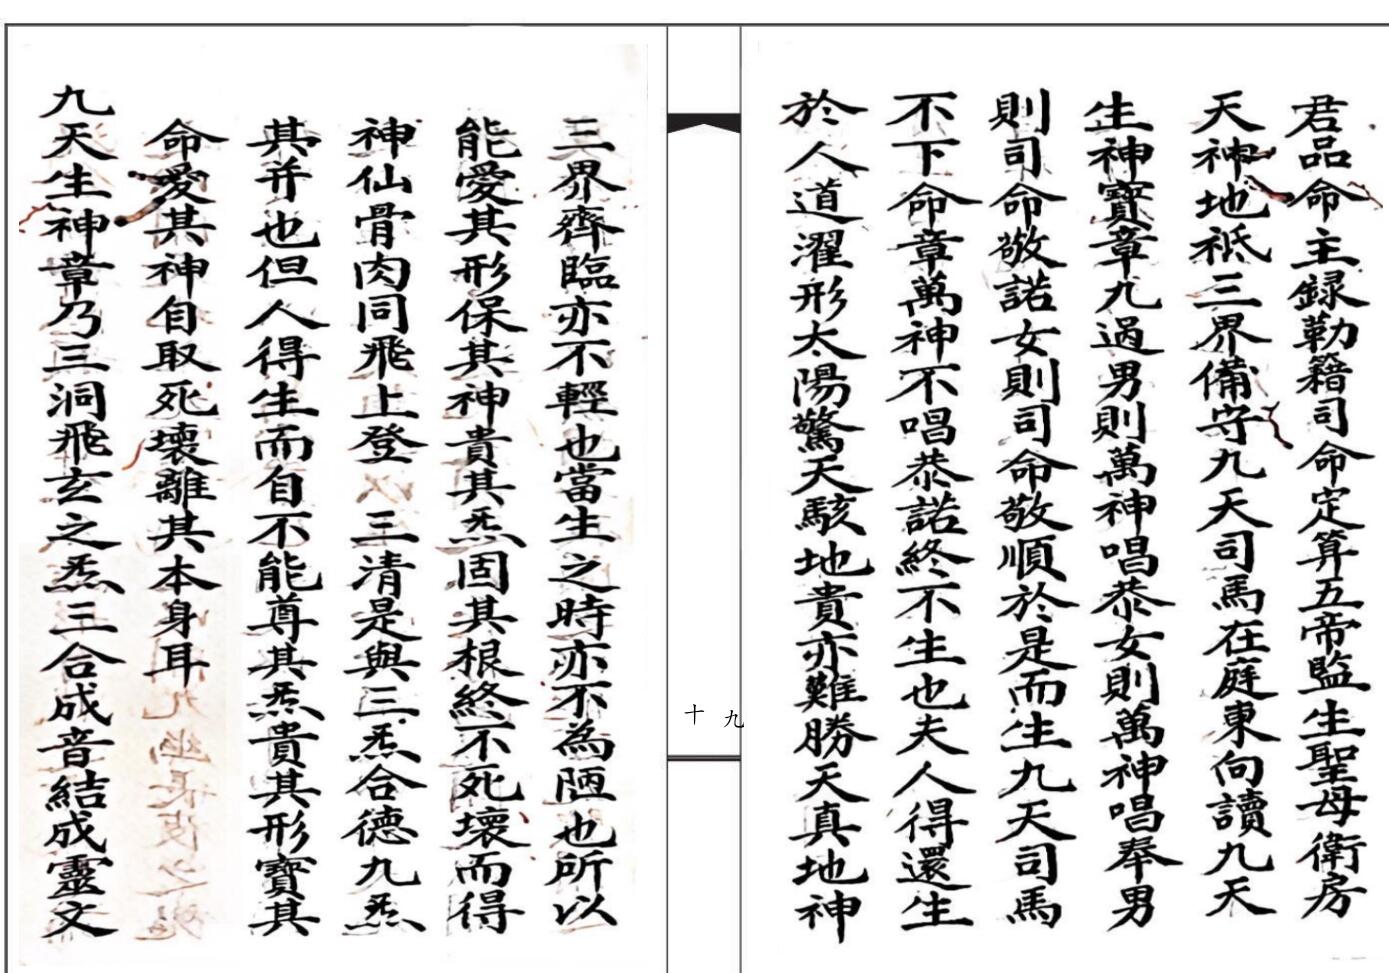 君品命主録勒籍司命定算五帝監生聖母衛房
天神地祇三界備守九天司馬在庭東向讀九天
生神寶章九過男則萬神唱恭女則萬神唱奉男
則司命敬諾女則司命敬順於是而生九天司馬
不下命章萬神不唱恭諾終不生也夫人得還生
於人道濯形太陽驚天駭地貴亦難勝天真地神
十九
三界齊臨亦不輕也當生之時亦不為陋也所以
能愛其形保其神貴其炁固其根終不死壞而得
神仙骨肉同飛上登三清是與三炁合德九炁
其并也但人得生而自不能尊其炁貴其形寶其
命愛其神自取死壞離其本身耳
九天生神章乃三洞飛玄之炁三合成音結成靈文